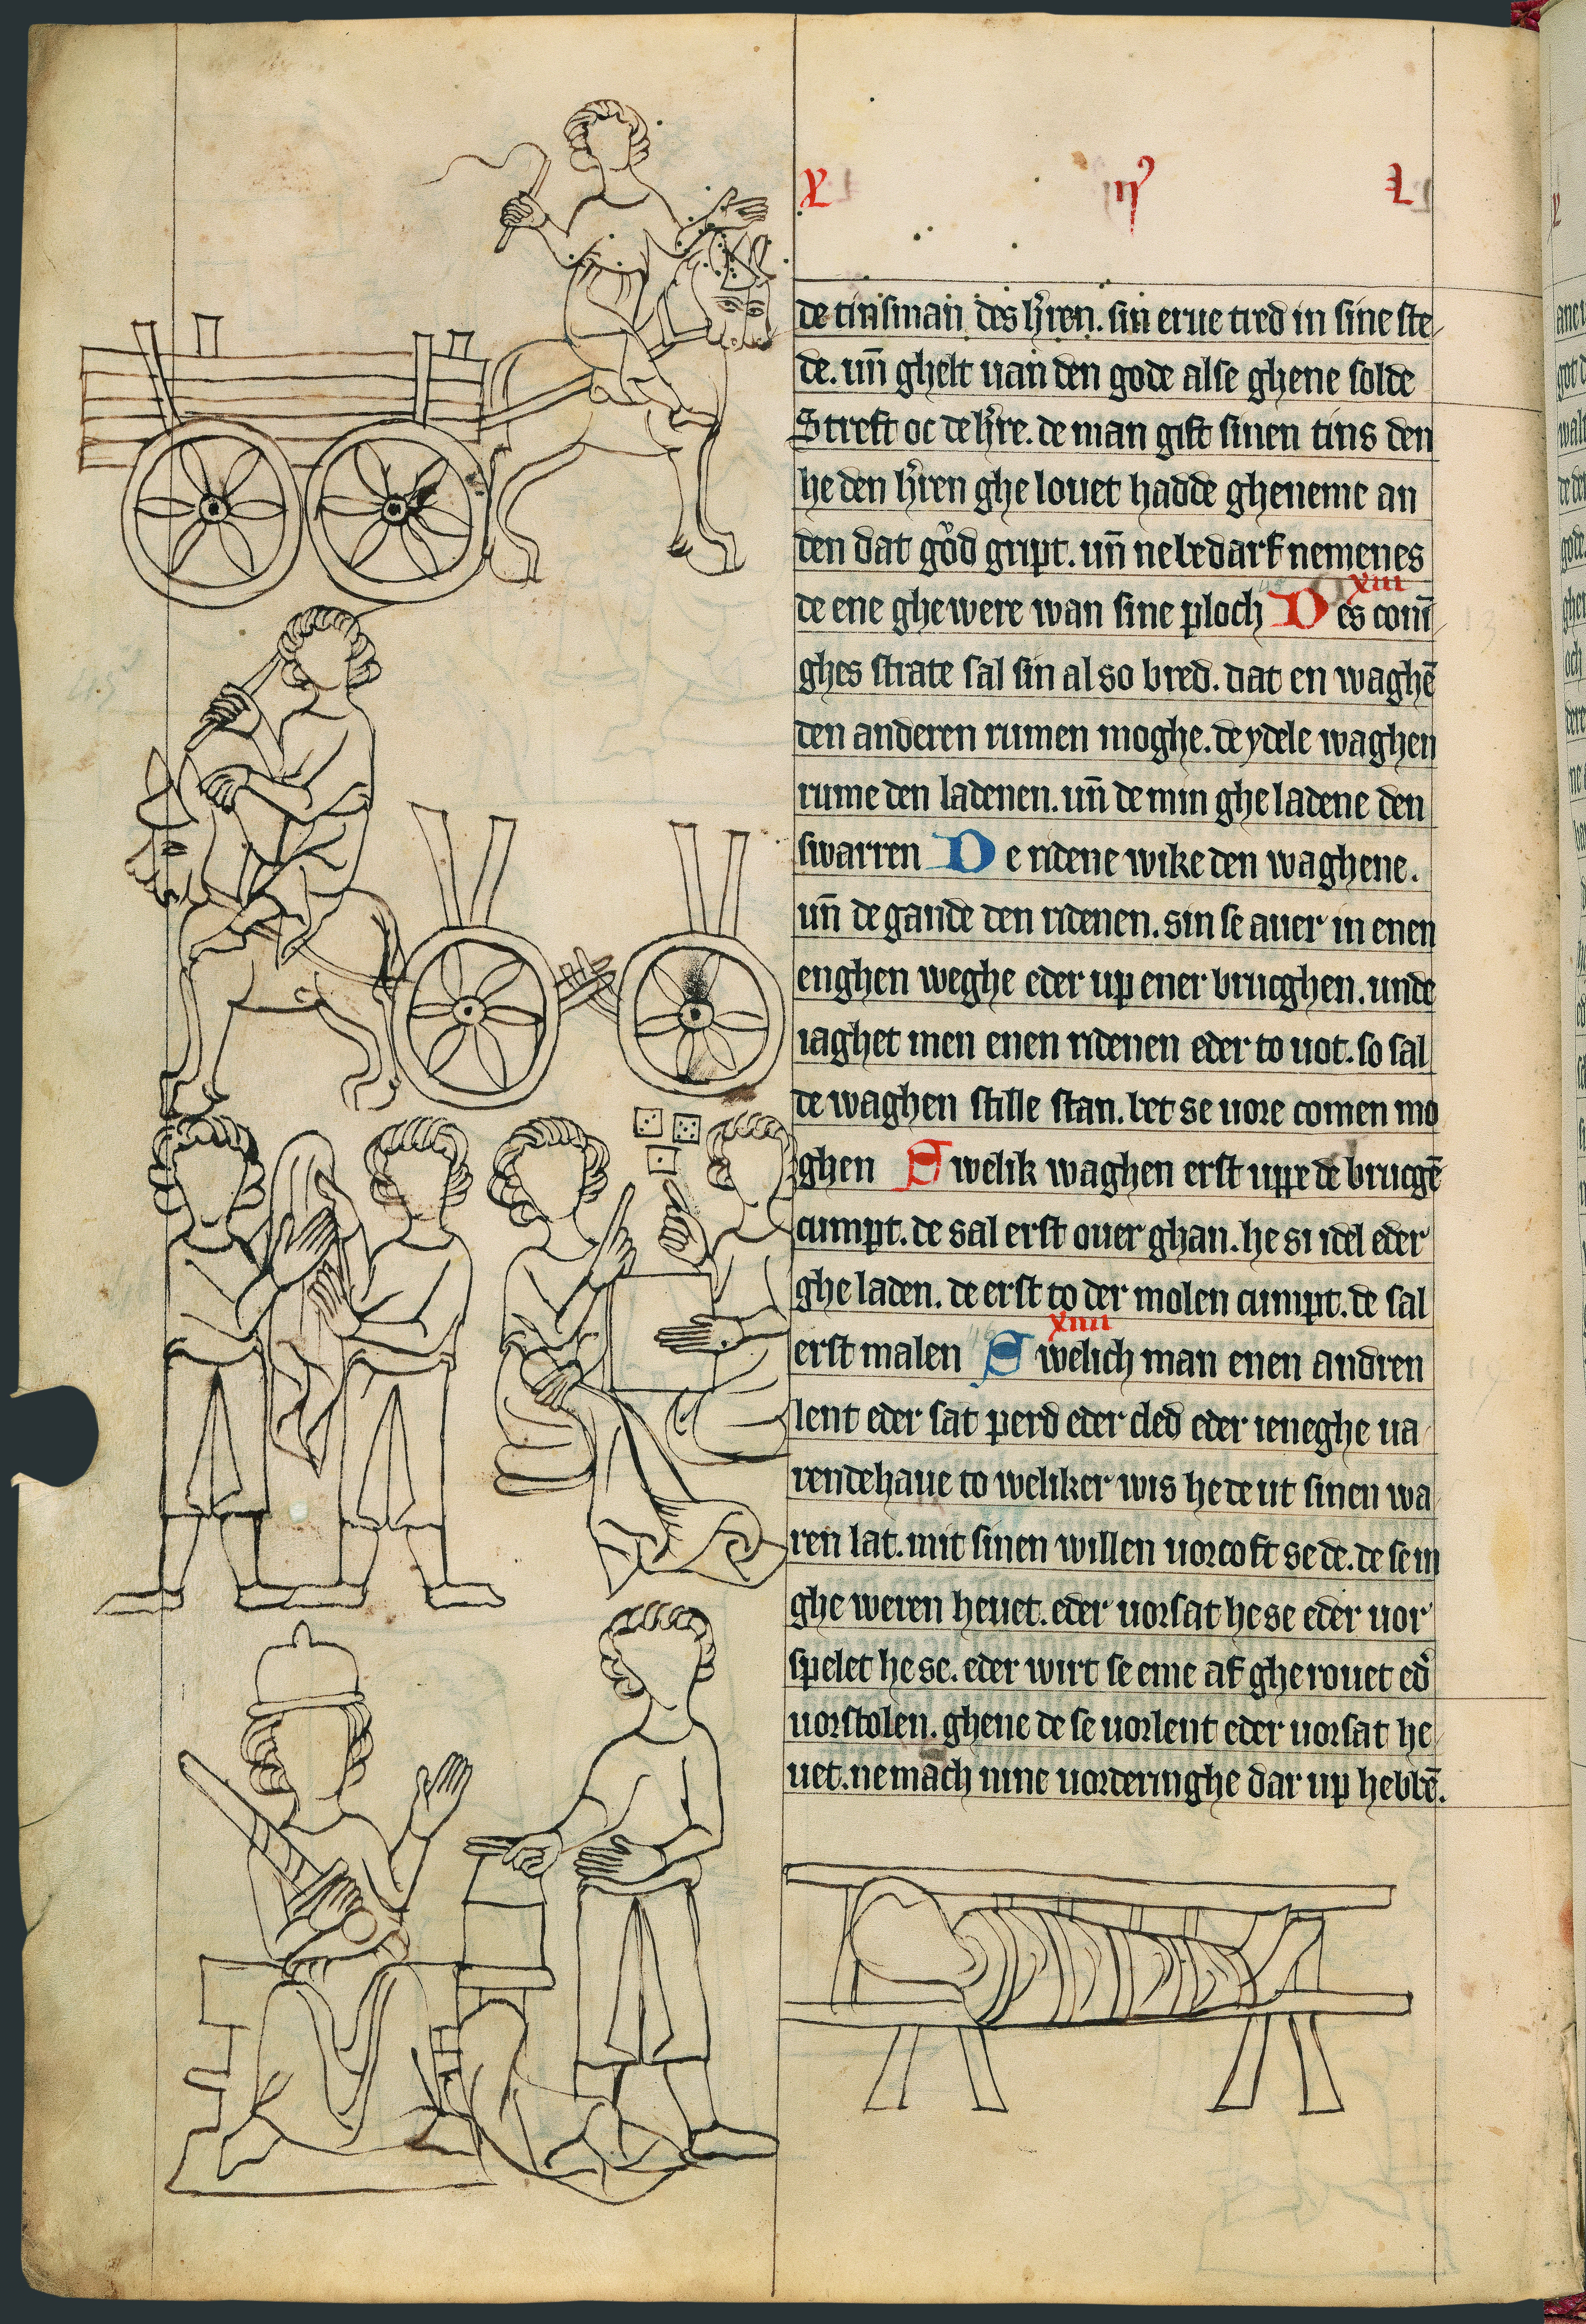 X ij L
de tinsman des h'ren. sin erue tred in sine ste
de. un̄ ghelt uan den gode alse ghene solde
Streft oc de h're. de man gift sinen tins den
he den h'ren ghe louet hadde gheneme an
den dat gŏd gript. un̄ ne bedarf nemenes
xiii
de ene ghewere wan sine ploch Des conī
ghes strate sal sin also bred. dat en waghē
den anderen rumen moghe. de ydele waghen
rume den ladenen. un̄ de min ghe ladene den
swarren De ridene wike den waghene.
un̄ de gande den ridenen. sin se auer in enen
enghen weghe eder up ener brucghen. unde
iaghet men enen ridenen eder to uot. so sal
de waghen stille stan. bet se uore comen mo
ghen Swelik waghen erst uppe de brucgē
cumpt. de sal erst ouer ghan. he si idel eder
ghe laden. de erst to der molen cumpt. de sal
xiiii
erst malen Swelich man enen andren
lent eder sat perd eder cled eder ieneghe ua
rendehaue to weliker wis he de ut sinen wa
ren lat. mit sinen willen uorcoft se de. de se in
ghe weren heuet. eder uorsat he se eder uor
spelet he se. eder wirt se eme af gherouet ed'
uorstolen. ghene de se uorlent eder uorsat he
uet. ne mach nine uorderinghe dar up hebbē.